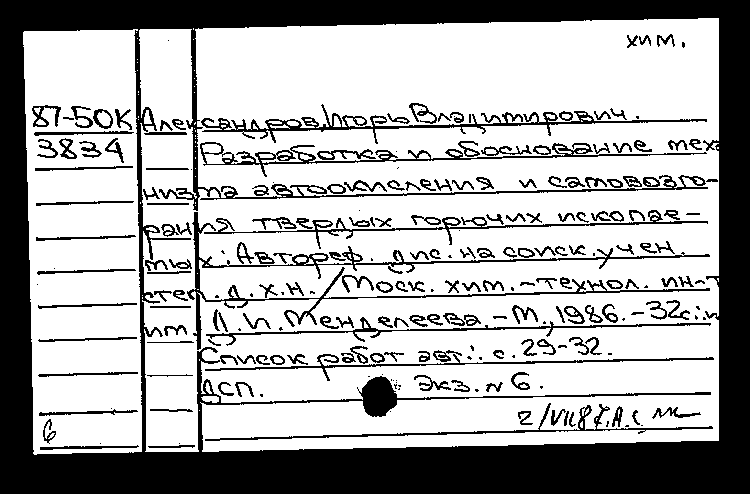 хим.
87-50К Александров, Игорь Владимирович.
3834 Разработка и обоснование меха
низма автоокисления и самовозго-
рания твердых горючих ископае-
мых: Автореф. дис. на соиск. учен.
степ. д. х. н. / Моск. хим.-технол. ин-т
им. Д. И. Менделеева. - М., 1986. - 32с.:и
Список работ авт.: с. 29-32.
ДСП. Экз. N 6.
6